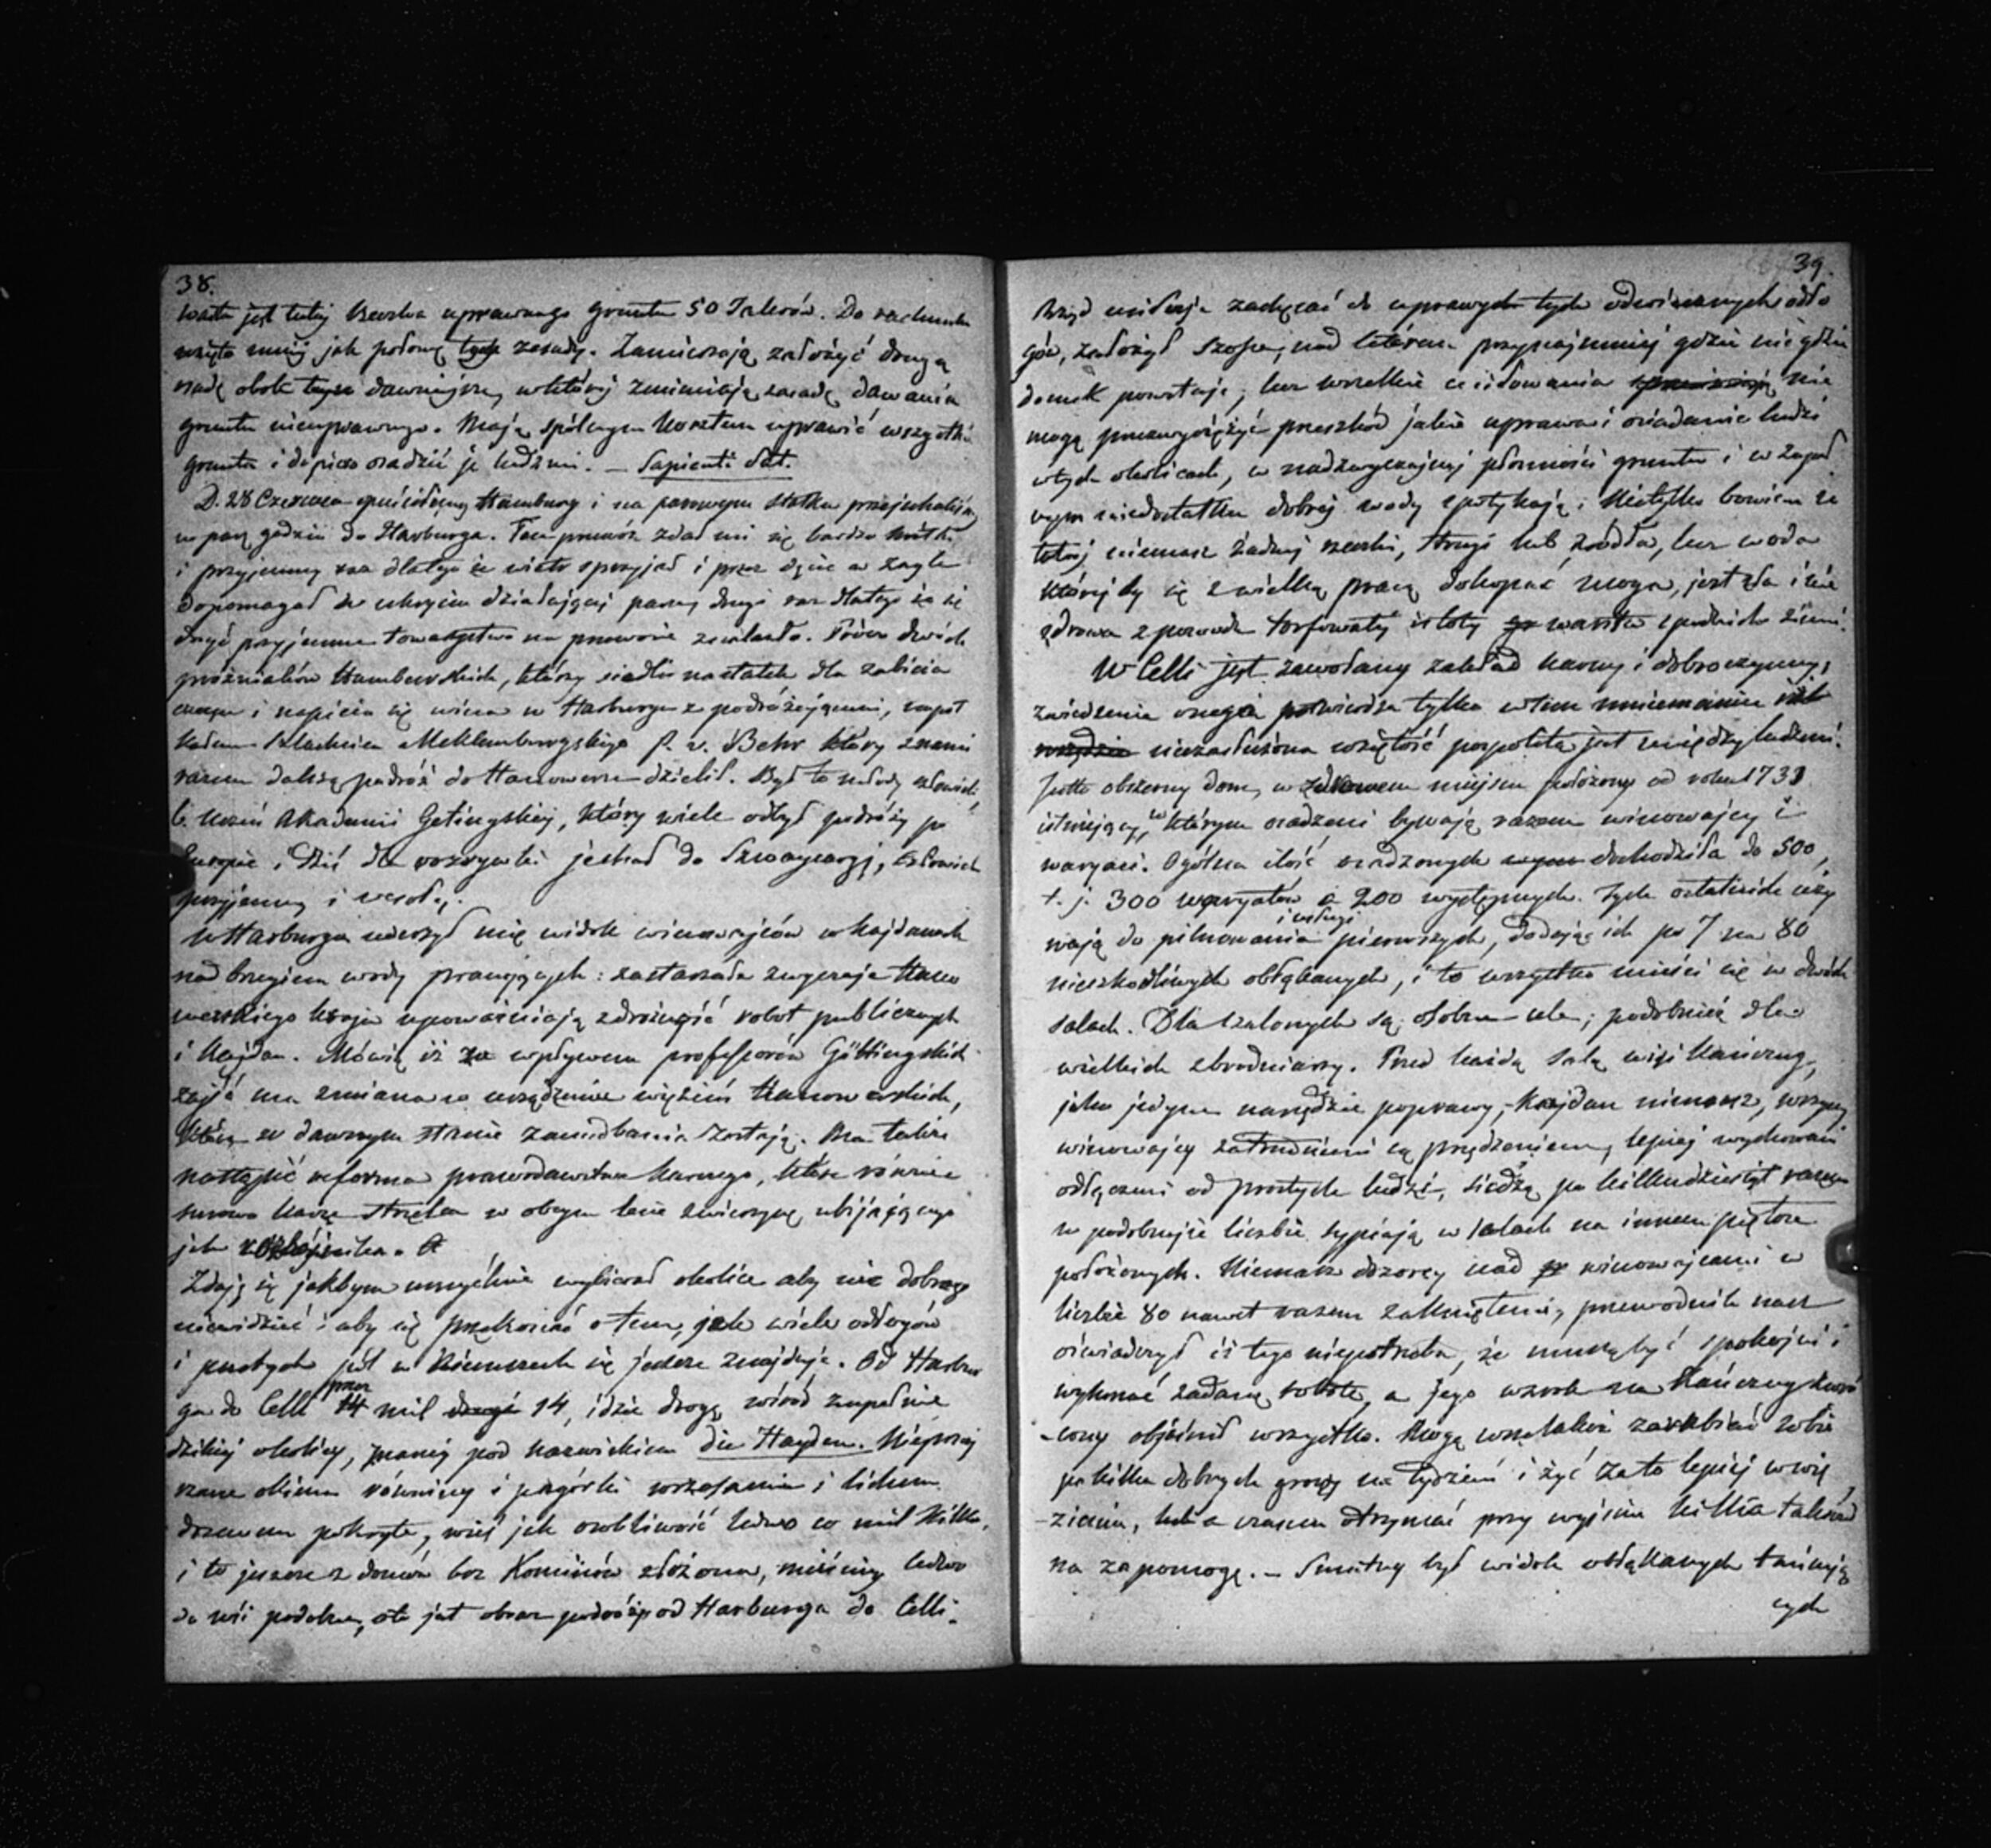 38.
warta jest tutaj uprawnego gruntu 50 Talerów. Do rachunku
wzięto mniej jak połowę tych zasady. Zamierzają założyć drugą
osadę obok dawniejszej, w której zmieniają zasadę dawania
gruntu nieuprawnego. Mają spólnym kosztem uprawić wszystkie
grunta i dopiero osadzić je ludźmi. — Sapienti Sat.
D. 28 Czerwca opuściliśmy Hamburg i na parowym statku przejechaliśmy
w parę godzin do Harburga. Ten przewóz zdał mi się bardzo krótki
i przyjemny raz dlatego że wiatr sprzyjał i przez dęcie w żagle
dopomagał w ukryciu działającej pary, drugi raz dlatego że się
dość przyjemne towarzystwo na przewozie znalazło. Prócz dwóch
próżniaków Hamburskich, którzy siedli na statek dla zabicia
czasu i napicia się wina w Harburgu z podróżującemi,
Szlachcica Meklemburgskiego p. v. Behr który z nami
razem dalszą podróż do Hanoweru dzielił. Był to młody człowiek,
b. uczeń Akademii Getingskiej, który wiele odbył podróży po
Europie i dziś dla rozrywki jechał do Szwaycarji, człowiek
przyjemny i wesoły.
W Harburgu uderzył mię widok winowajców w kajdanach
nad brzegiem wody pracujących: zastarzałe zwyczaje Hano
werskiego kraju upoważniają zdrożność robot publicznych
i kajdan. Mówią iż za wpływem professorów Göttingskich
zajść ma zmiana w urządzeniu więzień Hanowerskich,
które w dawnym stanie zaniedbania zostają. Ma także
nastąpić reforma prawodawstwa karnego, które równie
surowo karze strzelca w obcym lesie zwierzynę ubijającego
jak rozbójnika.
Zdaje się jakbym umyślnie wybierał okolice aby nic dobrego
niewidzieć i aby się przekonać o tem, jak wiele odłogów
i pustych pól w Niemczech się jeszcze znajduje. Od Harbur
ga do Celli przez mil 14, idzie drogą wśród zupełnie
dzikiej okolicy, znanej pod nazwiskiem die Hayden. Nieprzej
rzane okiem równiny i pagórki wrzosami i lichem
drzewem pokryte, wieś jak osobliwość ledwo co mil kilka,
i to jeszcze z domów bez kominów złożona, mieściny ledwo
do wsi podobne, oto jest obraz podróży od Harburga do Celli.
39.
Rząd usiłuje zachęcać do uprawy tych odwiecznych odło
gów, założył szossę, nad którem przynajmniej gdzie niegdzie
domek powstaje; lecz wszelkie usiłowania nie
mogą przezwyciężyć przeszkód jakie uprawa i osiadanie ludzi
w tych okolicach, w nadzwyczajnej płonności gruntu i w zupeł
nym niedostatku dobrej wody spotykają: Nietylko bowiem że
tutaj niemasz żadnej rzeczki, strugi lub źródła, lecz woda
której by się z wielką pracą dokopać mogą, jest zła i nie
zdrowa z powodu torfowatej istoty warstw spodnich ziemi.
W Celli jest zawołany zakład karny i dobroczynny,
zwiedzenie onegoż potwierdza tylko w tem mniemaniu iż
niezasłużona wziętość pospolitą jest między ludźmi.
Jestto obszerny dom, w zdrowem miejscu położony od roku 1731
istniejący, w którym osadzeni bywają razem winowajcy i
waryaci. Ogólna ilość osadzonych dochodziła do 500,
t. j. 300 waryatów a 200 występnych. Tych ostatnich uży
wają do pilnowania i usługi pierwszych, dodając ich po 7 na 80
nieszkodliwych obłąkanych, i to wszystko mieści się w dwóch
salach. Dla szalonych są osobne cele; podobnież dla
wielkich zbrodniarzy. Przed każdą salą wisi kańczug,
jako jedyne narzędzie poprawy, kajdan niemasz, wszyscy
winowajcy zatrudnieni są przędzeniem, lepiej wychowani
odłączeni od prostych ludzi, siedzą po kilkudziesiąt razem
w podobnejże liczbie sypiają w salach na innem piętrze
położonych. Niemasz dozorcy nad winowajcami w
liczbie 80 nawet razem zamkniętemi, przewodnik nasz
oświadczył iż tego niepotrzeba, że muszą być spokojni i
wykonać zadaną robotę, a jego wzrok na kańczug zwró
-cony objaśnił wszystko. Mogą wszelakoż zarabiać sobie
po kilka dobrych groszy na tydzień i żyć za to lepiej w wię
-zieniu, lub z czasem otrzymać przy wyjściu kilka talarów
na zapomogę. — Smutny był widok obłąkanych tańcują
cych